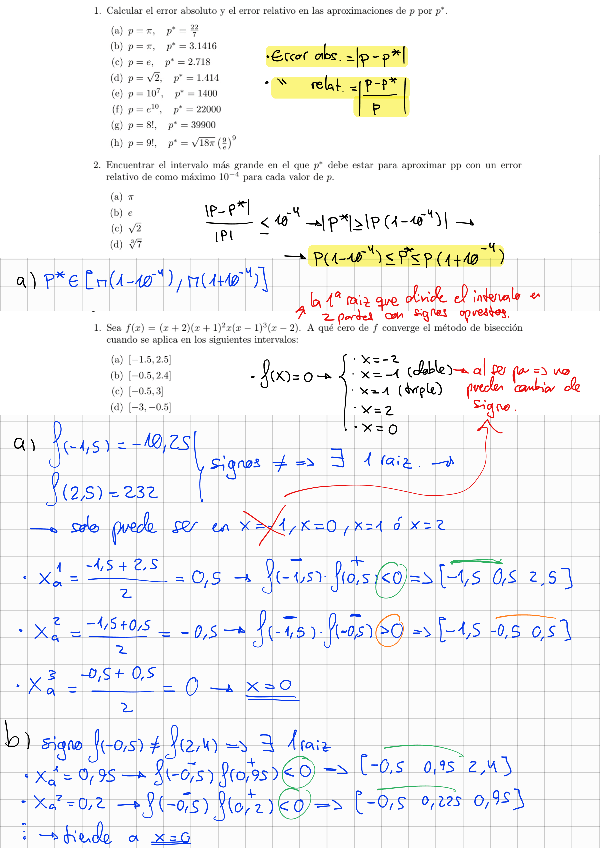 1. Calcular el error absoluto y el error relativo en las aproximaciones de p por p*.
(a) p = π, p* = 22/7
(b) p = π, p* = 3.1416
(c) p = e, p* = 2.718
(d) p = √2, p* = 1.414
(e) p = 10^7, p* = 1400
(f) p = e^10, p* = 22000
(g) p = 8!, p* = 39900
(h) p = 9!, p* = √18π (9/e)^9
· Error abs. = |p-p*|
· " relat. = |p-p*/p|
2. Encuentrar el intervalo más grande en el que p* debe estar para aproximar pp con un error
relativo de como máximo 10^-4 para cada valor de p.
(a) π
(b) e
(c) √2
(d) ∛7
|p-p*|/|p| ≤ 10^-4 → |p*| ≥ |p(1-10^-4)| →
→ p(1-10^-4) ≤ p* ≤ p(1+10^-4)
a) p* ∈ [π(1-10^-4), π(1+10^-4)]
↗ la 1ª raiz que divide el intervalo en
2 partes con signos opuestos.
1. Sea f(x) = (x + 2)(x + 1)^2x(x − 1)^3(x − 2). A qué cero de f converge el método de bisección
cuando se aplica en los siguientes intervalos:
(a) [−1.5, 2.5]
(b) [−0.5, 2.4]
(c) [−0.5, 3]
(d) [−3, −0.5]
· f(x)=0 → { · x=-2
· x=-1 (doble) → al ser par => no
· x=1 (triple) pueden cambiar de
· x=2 signo.
· x=0
a) f(-1,5) = -10,25
f(2,5) = 232
signos ≠ => ∃ 1 raiz. →
→ solo puede ser en x=-1, x=0, x=1 ó x=2
· Xa^1 = -1,5 + 2,5 / 2 = 0,5 → f(-1,5)· f(0,5) <0 => [-1,5 0,5 2,5]
· Xa^2 = -1,5+0,5 / 2 = -0,5 → f(-1,5)·f(-0,5) >0 => [-1,5 -0,5 0,5]
· Xa^3 = -0,5+0,5 / 2 = 0 → x=0
b) signo f(-0,5) ≠ f(2,4) => ∃ 1 raiz
· Xa^1 = 0,95 → f(-0,5) f(0,95) <0 => [-0,5 0,95 2,4]
· Xa^2 = 0,2 → f(-0,5) f(0,2) <0 => [-0,5 0,225 0,95]
⋮ → tiende a x=0